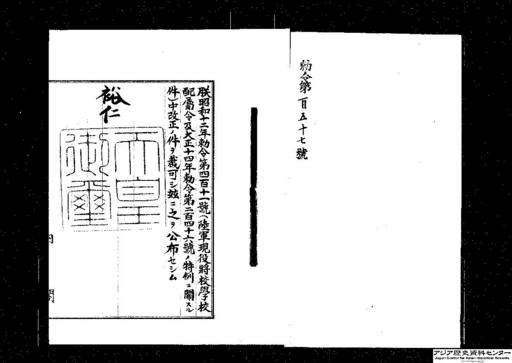 勅令第百五十七號
朕昭和十二年勅令第四百十一號(陸軍現役將校學校
配屬令及大正十四年勅令第二百四十六號ノ特例ニ關スル
件)中改正ノ件ヲ裁可シ玆ニ之ヲ公布セシム
裕仁
天皇
御璽
アジア歴史資料センター
Japan Center for Asian Historical Records